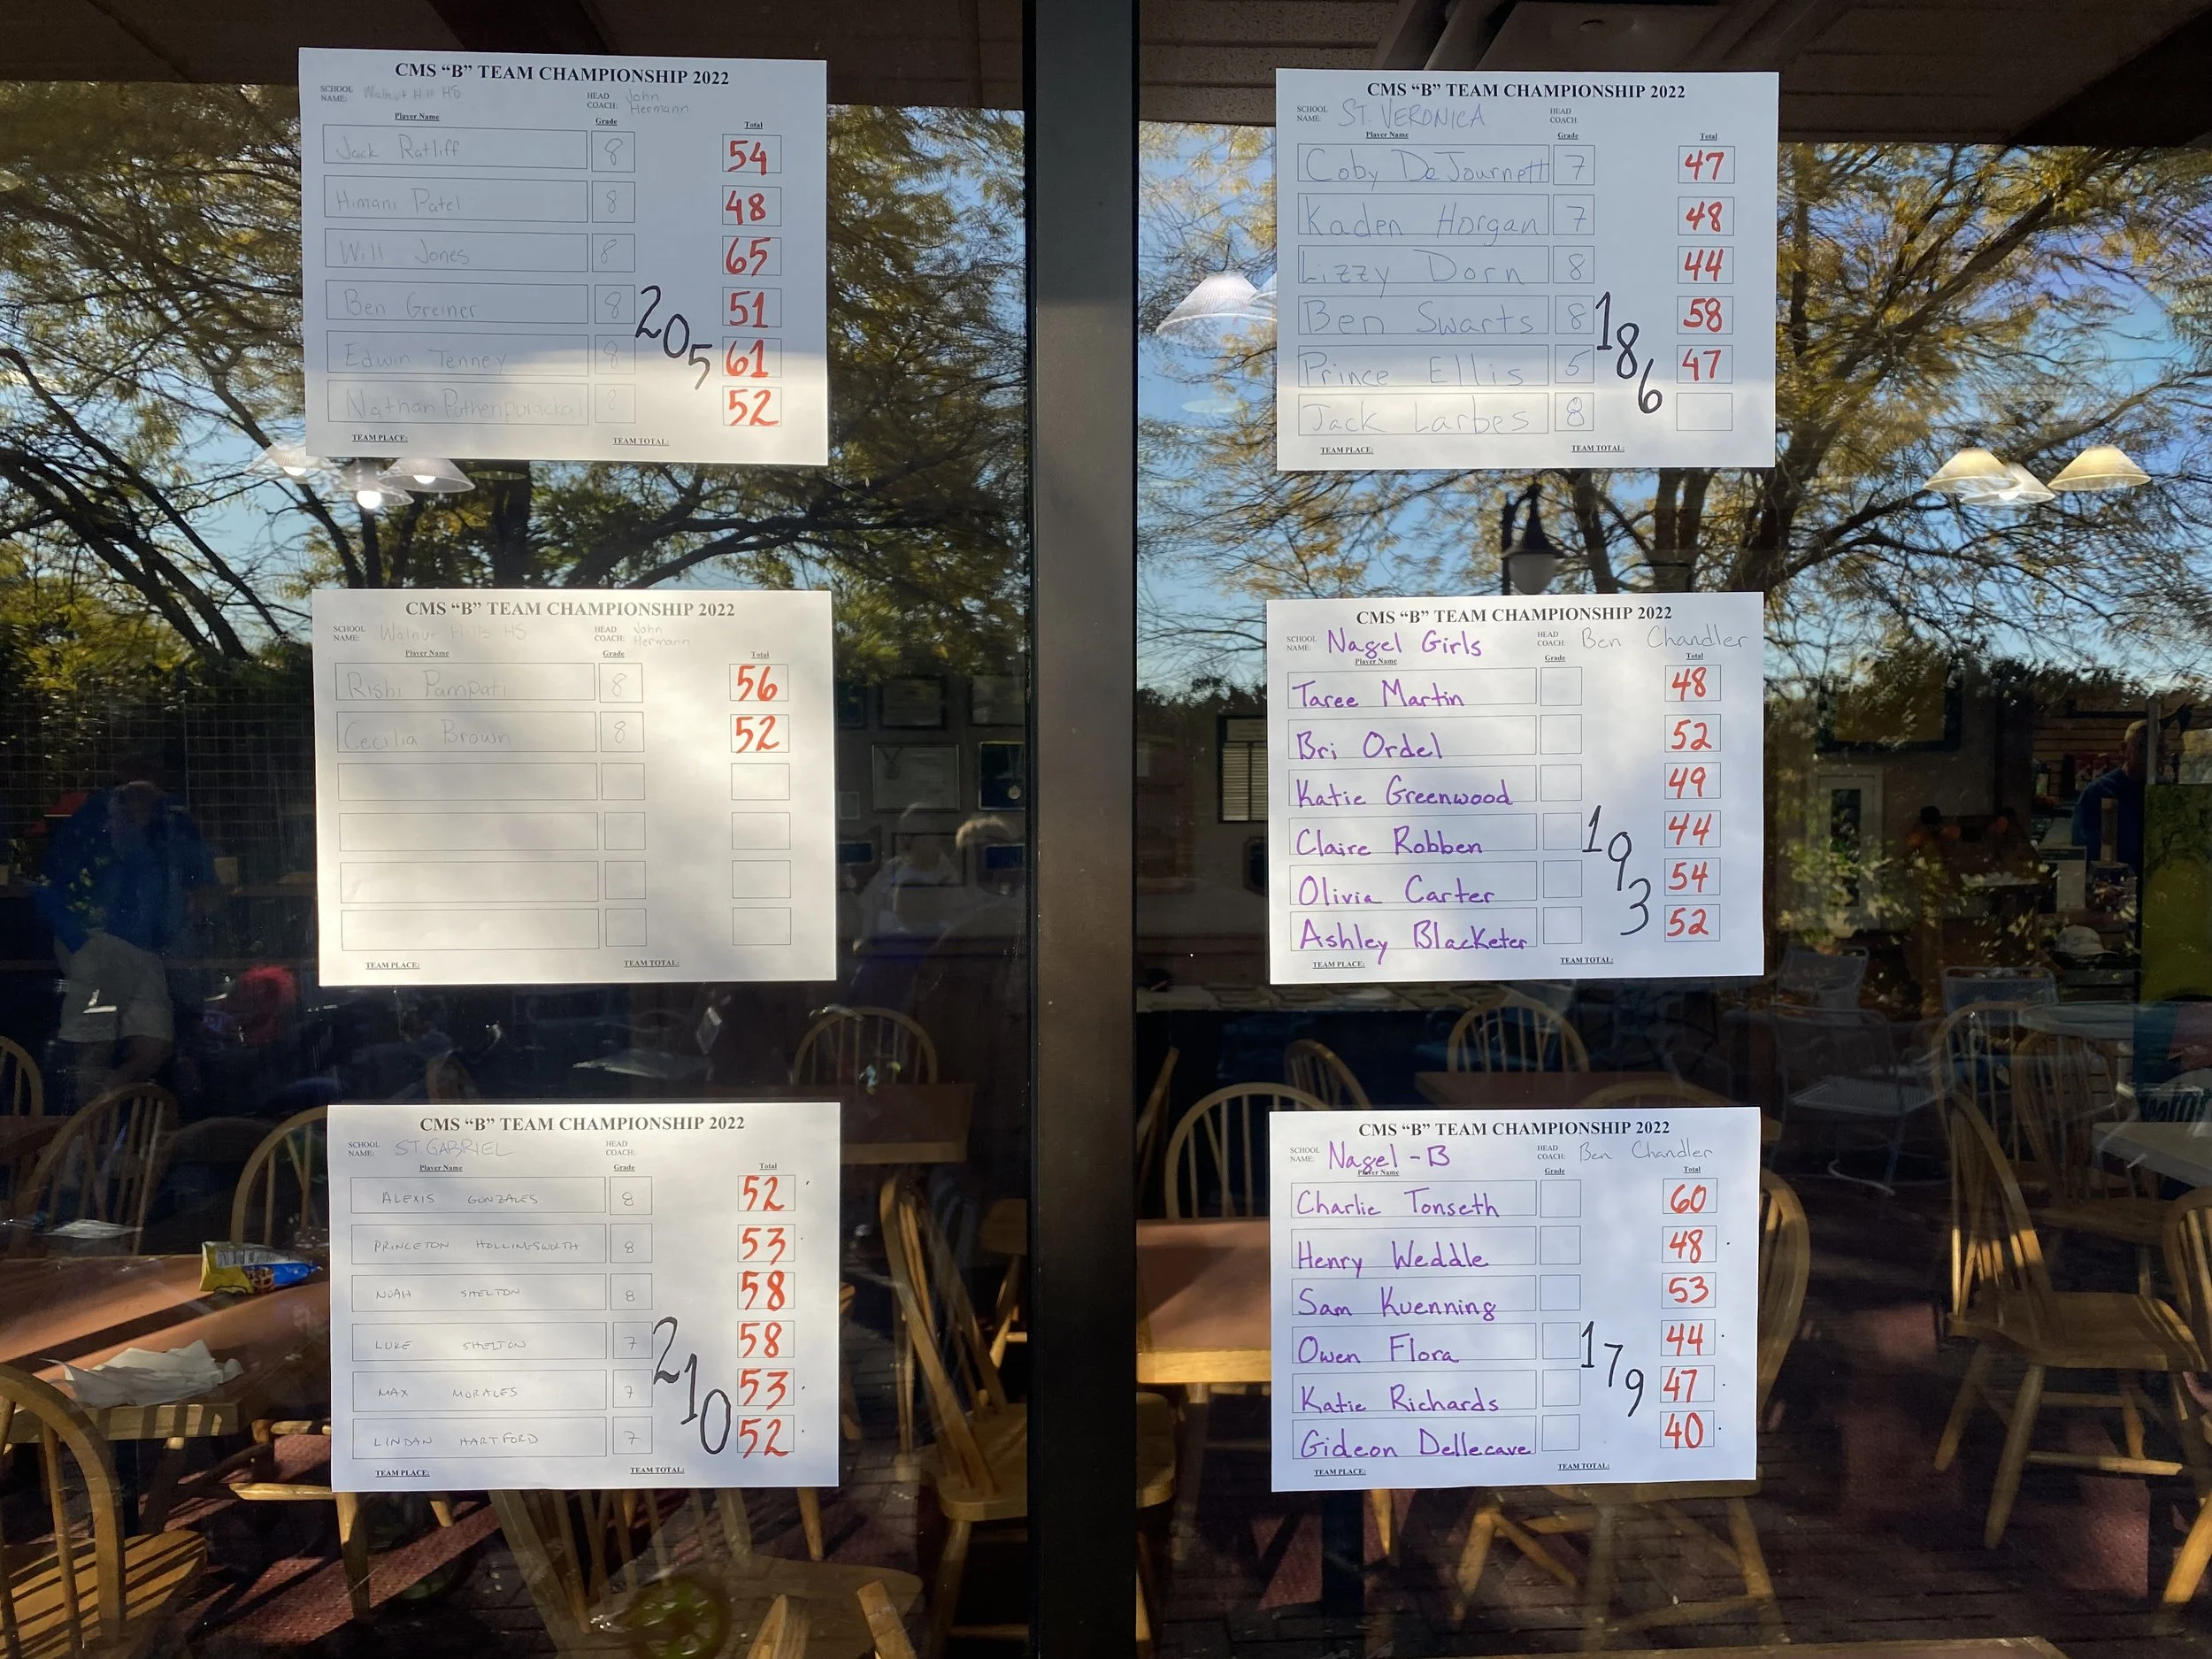 CMS “B” TEAM CHAMPIONSHIP 2022
SCHOOL NAME: Walnut Hills HS HEAD COACH: John Hermann
Player Name Grade Total
Jack Ratliff 8 54
Himani Patel 8 48
Will Jones 8 65
Ben Greiner 8 51
Edwin Tenney 8 61
Nathan 8 52
205
TEAM PLACE: TEAM TOTAL:
CMS “B” TEAM CHAMPIONSHIP 2022
SCHOOL NAME: Walnut Hills HS HEAD COACH: John Hermann
Player Name Grade Total
Rishi Pampati 8 56
Cecilia Brown 8 52
TEAM PLACE: TEAM TOTAL:
CMS “B” TEAM CHAMPIONSHIP 2022
SCHOOL NAME: ST. GABRIEL HEAD COACH:
Player Name Grade Total
ALEXIS GONZALES 8 52
PRINCETON HOLLINGSWORTH 8 53
NOAH SHELTON 8 58
LUKE SHELTON 7 58
MAX MORALES 7 53
LINDAN HARTFORD 7 52
210
TEAM PLACE: TEAM TOTAL:
CMS “B” TEAM CHAMPIONSHIP 2022
SCHOOL NAME: ST. VERONICA HEAD COACH:
Player Name Grade Total
Coby DeJournett 7 47
Kaden Horgan 7 48
Lizzy Dorn 8 44
Ben Swarts 8 58
Prince Ellis 5 47
Jack Larbes 8
186
TEAM PLACE: TEAM TOTAL:
CMS “B” TEAM CHAMPIONSHIP 2022
SCHOOL NAME: Nagel Girls HEAD COACH: Ben Chandler
Player Name Grade Total
Taree Martin 48
Bri Ordel 52
Katie Greenwood 49
Claire Robben 44
Olivia Carter 54
Ashley Blacketer 52
193
TEAM PLACE: TEAM TOTAL:
CMS “B” TEAM CHAMPIONSHIP 2022
SCHOOL NAME: Nagel - B HEAD COACH: Ben Chandler
Player Name Grade Total
Charlie Tonseth 60
Henry Weddle 48
Sam Kuenning 53
Owen Flora 44
Katie Richards 47
Gideon Dellecave 40
179
TEAM PLACE: TEAM TOTAL: